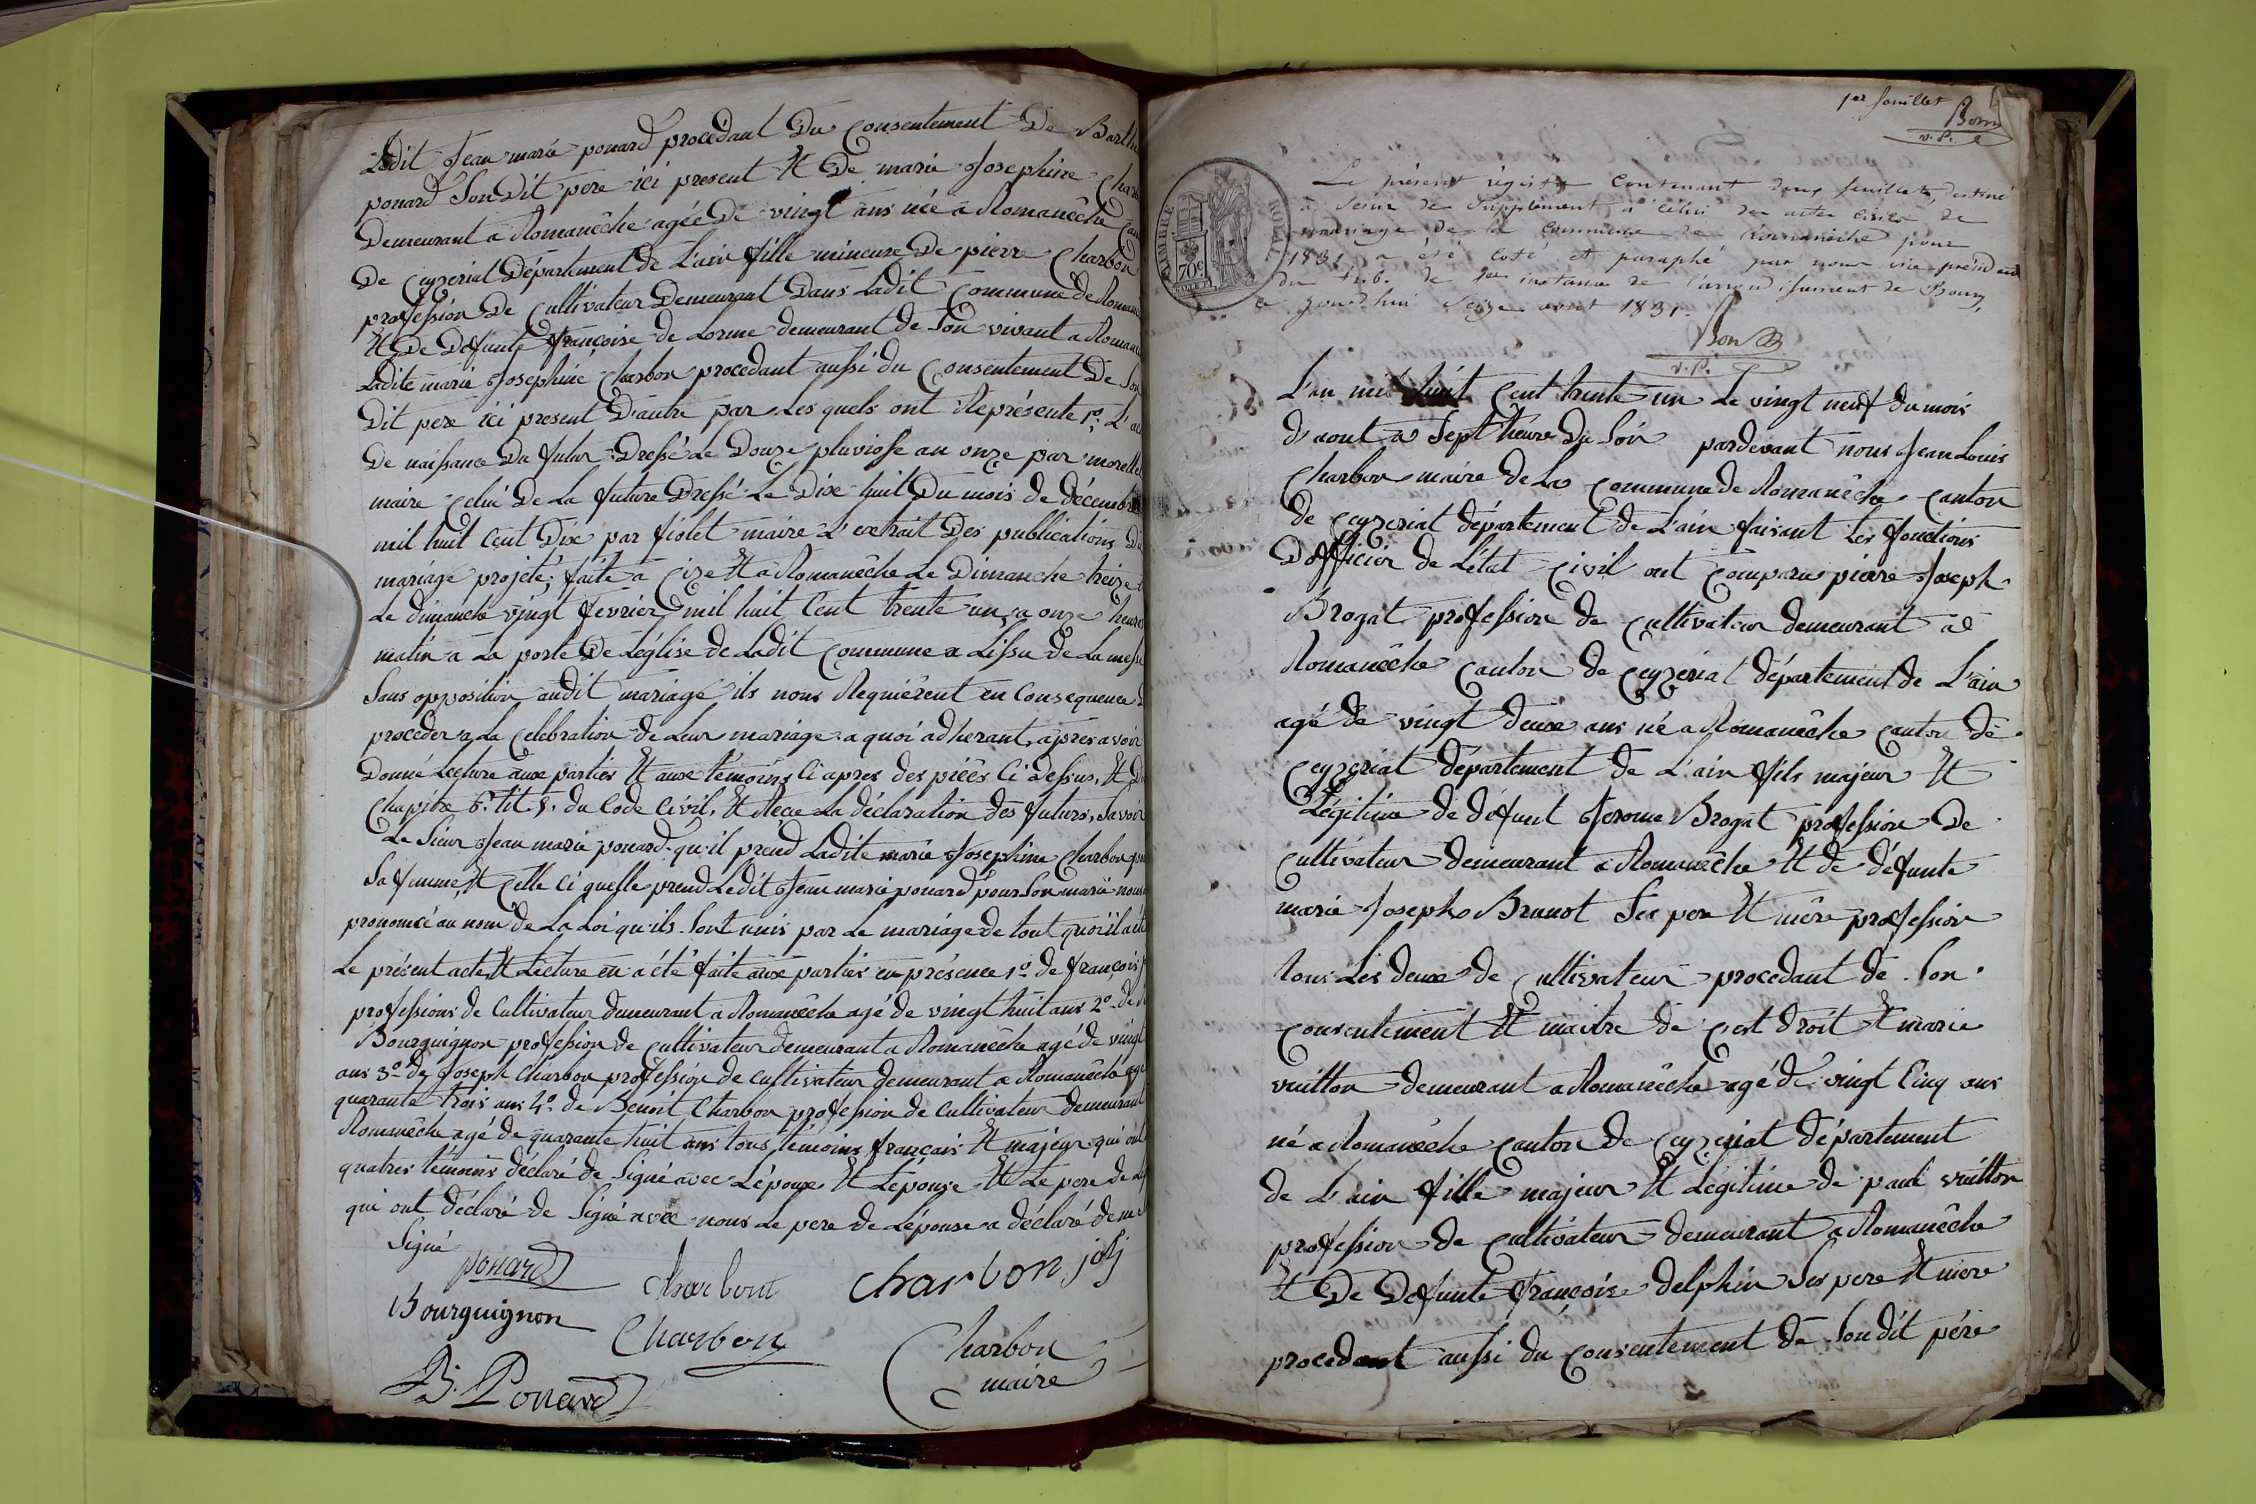 Ledit Jean marie ponard procédant Du Consentement De Barthe
ponard Son Dit pere ici present Et De marie Josephine Char
Demeurant a Romanêche agée De vingt ans née a Romanêche Can
De ceyzeriat Département de L'ain fille mineure De pierre Charbon
profession De Cultivateur Demeurant Dans Ladit Commune de Roman
Et De Défunte françoise de Lorme demeurant de Son vivant a Roman
Ladite marie Josephine Charbon procedant aussi du Consentement De Son
Dit pere ici present D'autre par Les quels ont Représente 1.° L'ac
De naissance Du futur Dressé Le Douze pluviose an onze par morelle
maire celui De La future Dressé Le Dix huit Du mois de décembre
mil huit Cent Dix par fiolet maire L'extrait Des publications Du
mariage projeté; faite a Cize Et a Romanêche Le Dimanche treize
Le dimanche vingt fevrier mil huit Cent trente un a onze heures
matin a La porte De Léglise de Ladit Commune a Lissu de La messe
Sans opposition audit mariage ils nous Requiérent en Consequence
proceder a La Celebration de Leur mariage a quoi adherant, apres avoir
Donné Lecture aux parties Et aux témoins Ci apres des piéès Ci dessus, Et Du
Chapitre 6. tit. 5. du Code Civil, Et Reçue La déclaration des futurs, Savoir
Le Sieur Jean marie ponard qu'il prend Ladite marie Josephine Charbon pour
Sa femme, Et Celle Ci quelle prend Ledit Jean marie ponard pour Son marie nous
prononcé au nom de La Loi qu'ils Sont unis par Le mariage de tout quoi il a été
Le présent acte Et Lecture en a été faite aux parties en présence 1.° de françois
professions de Cultivateur demeurant a Romanêche agé de vingt huit ans 2.° de
Bourguignon profession de Cultivateur demeurant a Romanêche agé de vingt
ans 3.° de Joseph Charbon profession de Cultivateur demeurant a Romanêche agé
quarante trois ans 4.° de Benoit Charbon profession de Cultivateur demeurant
Romanêche agé de quarante huit ans tous témoins français Et majeur qui ont
quatres témoins déclaré de Signé avec L'époux Et L'épouse Et Le pere de
qui ont déclaré de Signé avec nous Le pere de Lépouse a déclaré de ne
Signé
ponard Charbont Charbon josj
Bourguignon Charbon Charbon
B. Ponard maire
1er feuillet
Bon
v. P.
Le présent régistre Contenant deux feuillets, destiné
à Servir de Supplément à Celui des actes Civils de
mariage de la Commune de Romanêche pour
1831, a été Coté et paraphé par nous vice-président
du trib. de 1ere instance de l'arrondissement de Bourg,
aujourd'hui Seize aout 1831.
TIMBRE ROYAL
70c
Bon
v. P.
L'an mil huit Cent trente un Le vingt neuf du mois
d'aout a Sept heure Du Soir pardevant nous Jean Louis
Charbon maire de La Commune de Romanêche Canton
de ceyzeriat département de L'ain faisant Les fonctions
D'officier de Létat Civil ont Comparu pierre Joseph
Brogat profession de Cultivateur demeurant a
Romanêche Canton de Ceyzeriat département de L'ain
agé de vingt deux ans né a Romanêche Canton de
Ceyzeriat département de L'ain fils majeur Et
Légitime de défunt Jerome Brogat profession De
Cultivateur demeurant a Romanêche Et de défunte
marie Joseph Brunot Ses pere Et mére profession
tous Les deux de Cultivateur procedant de Son
Consentement Et maitre de Cest droit Et marie
vuitton demeurant a Romanêche agé de vingt Cinq ans
né a Romanêche Canton de Ceyzeriat département
de L'ain fille majeur Et Légitime de paul vuitton
profession de Cultivateur demeurant a Romanêche
Et De Défunte françoise delphin Ses pere Et mere
procedant aussi du Consentement de Son dit pére